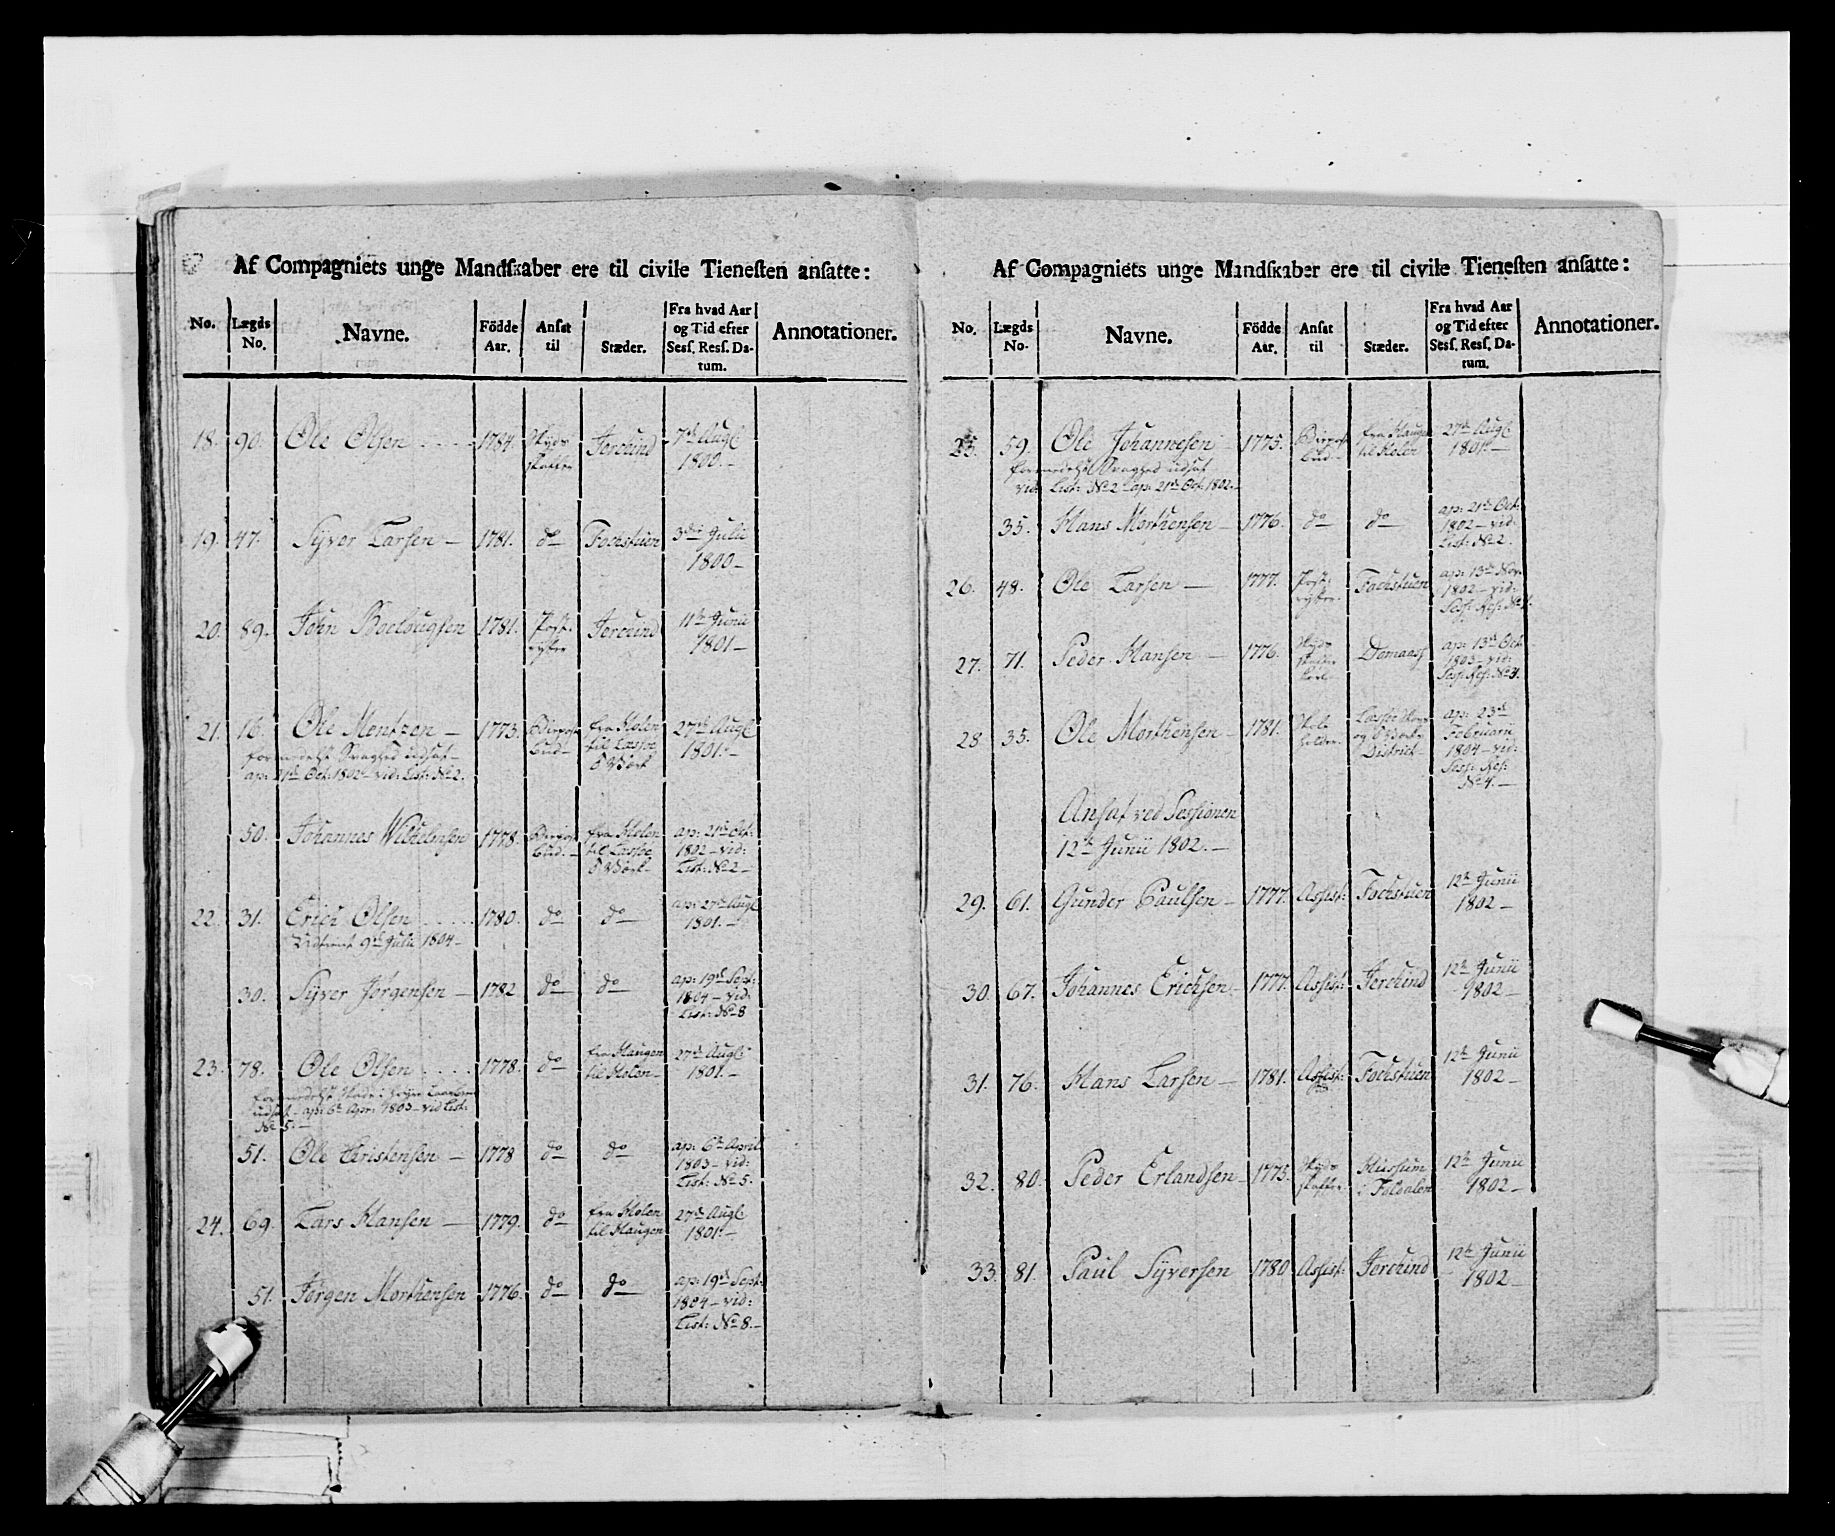 Af Compagniets unge Mandskaber ere til civile Tienesten ansatte:
No. Lægds No. Navne. Födde Aar. Ansat til Stæder. Fra hvad Aar og Tid efter Sess. Ress. Datum. Annotationer.
18. 90. Ole Olsen 1784. Skyds skaffer Jerchind 7de Augl 1800.
19. 47. Syver Larsen 1781. do Fochstuen 3die Julii 1800
20. 89. John 1781. Post rytter Jerchind 11te Junii 1801
21. 16. Ole Mentzen 1773. Bierpost bud fra Holen til 27de Augl 1801.
formedelst Svaghed udsat
ap: 21de Oct: 1802 vid: List: No 2.
50. Johannes Wilhelmsen 1778. Bierpost bud. fra Holen til ap: 21de Oct: 1802 vid: List: No 2
22. 31. Erich Olsen 1780. do do ap: 27de Augl 1801.
Udtient 9de Julii 1804
30. Syver Jørgensen 1782 do do ap: 19de Sept: 1804 vid: List: No 8
23. 78. Ole Olsen 1778. do fra Haugen til Holen 27de Augl 1801.
formedelst Skade i høyre
udsat ap: 6te Apr: 1803 vid List:
No 5.
51. Ole Christensen 1778 do do ap: 6te April 1803 vid: List: No 5.
24. 69. Lars Hansen 1779. do fra Holen til Haugen 27de Augl 1801.
51. Jørgen Morthensen 1776. do do ap: 19de Sept: 1804 vid: List: No 8.
Af Compagniets unge Mandskaber ere til civile Tienesten ansatte:
No. Lægds No. Navne. Födde Aar. Ansat til Stæder. Fra hvad Aar og Tid efter Sess. Ress. Datum. Annotationer.
25. 59. Ole Johannesen 1775. Bierpost bud fra Haugen til Holen 27de Augl 1801.
formedelst Svaghed udsat
vid: List: No 2 ap: 21de Oct: 1802.
35. Hans Morthensen 1776. do do ap: 21de Oct: 1802 vid: List: No 2.
26. 48. Ole Larsen 1777. Post rytter Fochstuen ap: 13de Nov. 1802 vid: Sess: Res: No
27. 71. Peder Hansen 1776. Skyds Domaas ap: 13de Oct 1803 vid: Sess: Res: No 4.
28. 35. Ole Morthensen 1781. holder District ap: 23de Februarii 1804 vid: Sess: Res: No 4.
Ansat ved Sessionen
12te Junii 1802.
29. 61. Gunder Paulsen 1777. Assist: Fochstuen 12te Junii 1802
30. 67. Johannes Erichsen 1777. Assist: Jerchind 12te Junii 1802
31. 76. Hans Larsen 1781. Assist: Fochstuen 12te Junii 1802
32. 80. Peder Erlandsen 1775. Skyds skaffer Husum i Foldalen 12te Junii 1802
33. 81. Paul Syversen 1780 Assist: Jerchind 12te Junii 1802